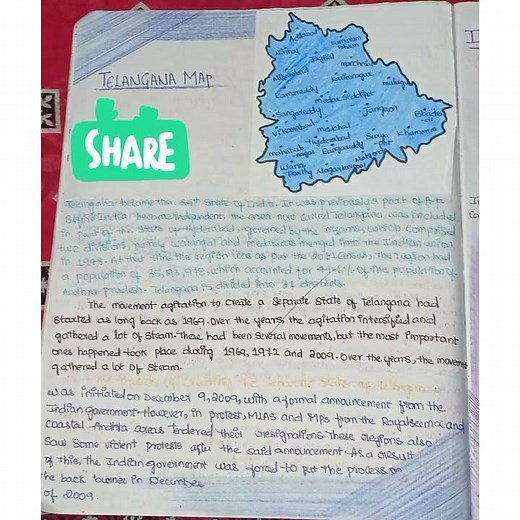 TELANGANA MAP
SHARE
Adilabad
Kumuram
Nirmal
Jagtial
mancherial
Nizamabad
Karimnagar
Kamareddy
medak Siddipet
Sangareddy
Jangaon
Vikarabad
medchal
Hyderabad
Surya
Khammam
mahabub
nagar
Rangareddy
pet
Wana
Nalgonda
parthy
Nagarkurnool
Telangana became the 29th State of India. It was previously a part of A.P
Before India become independent the area now called Telangana was included
in part of the state of Hyderabad, governed by the nizams, which comprised
two divisions, namely warangal and medak was merged into the Indian union
in 1948. At that time the region as per the 2011 Census, the region had
a population of 35,93,978, which accounted for 41.6% of the population of
Andhra-Pradesh. Telangana is divided into 31 districts.
The movement agitation to create a Separate State of Telangana had
started as long back as 1969. Over the years, the agitation intensified and
gathered a lot of Steam. There had been Several movements, but the most important
ones happened took place during 1969, 1972 and 2009. Over the years, the movement
gathered a lot of Steam.
the Separate State of Telangana
was initiated on December 9, 2009, with a formal announcement from the
Indian government. However, in protest, MLAS and MPs from the Rayalseema and
coastal Andhra areas tendered their resignations. These regions also
saw some violent protests after the said announcement. As a result
of this, the Indian government was forced to put the process on
the back burner in December
of 2009.